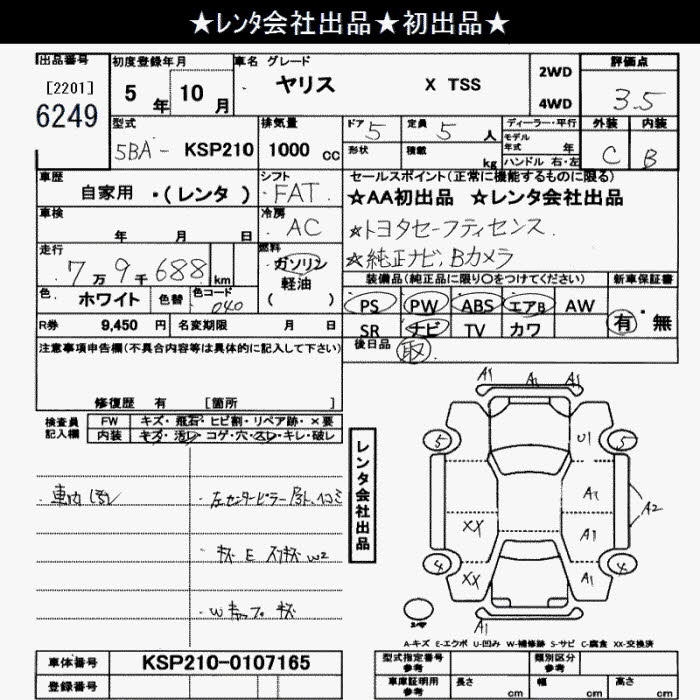 ★レンタ会社出品★初出品★
出品番号 初度登録年月 車名 グレード 2WD 評価点
[2201] 5年 10月 ヤリス X TSS 4WD 3.5
6249
型式 排気量 ドア 5 定員 5 人 ディーラー・平行 外装 内装
5BA- KSP210 1000 cc 形状 積載 kg モデル年式 年 C B
ハンドル 右・左
車歴 シフト セールスポイント(正常に機能するものに限る)
自家用 ・(レンタ) FAT ★AA初出品 ★レンタ会社出品
車検 年 月 日 冷房 AC ☆トヨタセーフティセンス.
走行 7万9千688 km 燃料 ガソリン 軽油 ( ) ☆純正ナビ、Bカメラ
装備品(純正品に限り○をつけてください) 新車保証書
色 ホワイト 色替 色コード 040 PS PW ABS エアB AW 有・無
R券 9,450 円 名変期限 月 日 SR ナビ TV カワ
注意事項申告欄(不具合内容等は具体的に記入して下さい) 後日品 取
修復歴 有 [箇所 ]
検査員記入欄 FW キズ・飛石・ヒビ割・リペア跡・×要
内装 キズ・汚レ・コゲ・穴・スレ・キレ・破レ
A1 A1 A1
5 U1 5
レンタ会社出品
A1 A2
XX A1
4 XX A1 4
A1
A-キズ E-エクボ U-凹み W-補修跡 S-サビ C-腐食 XX-交換済
車体番号 KSP210-0107165 型式指定番号 参考 類別区分 参考
登録番号 車庫証明用 参考 長さ cm 幅 cm 高さ cm